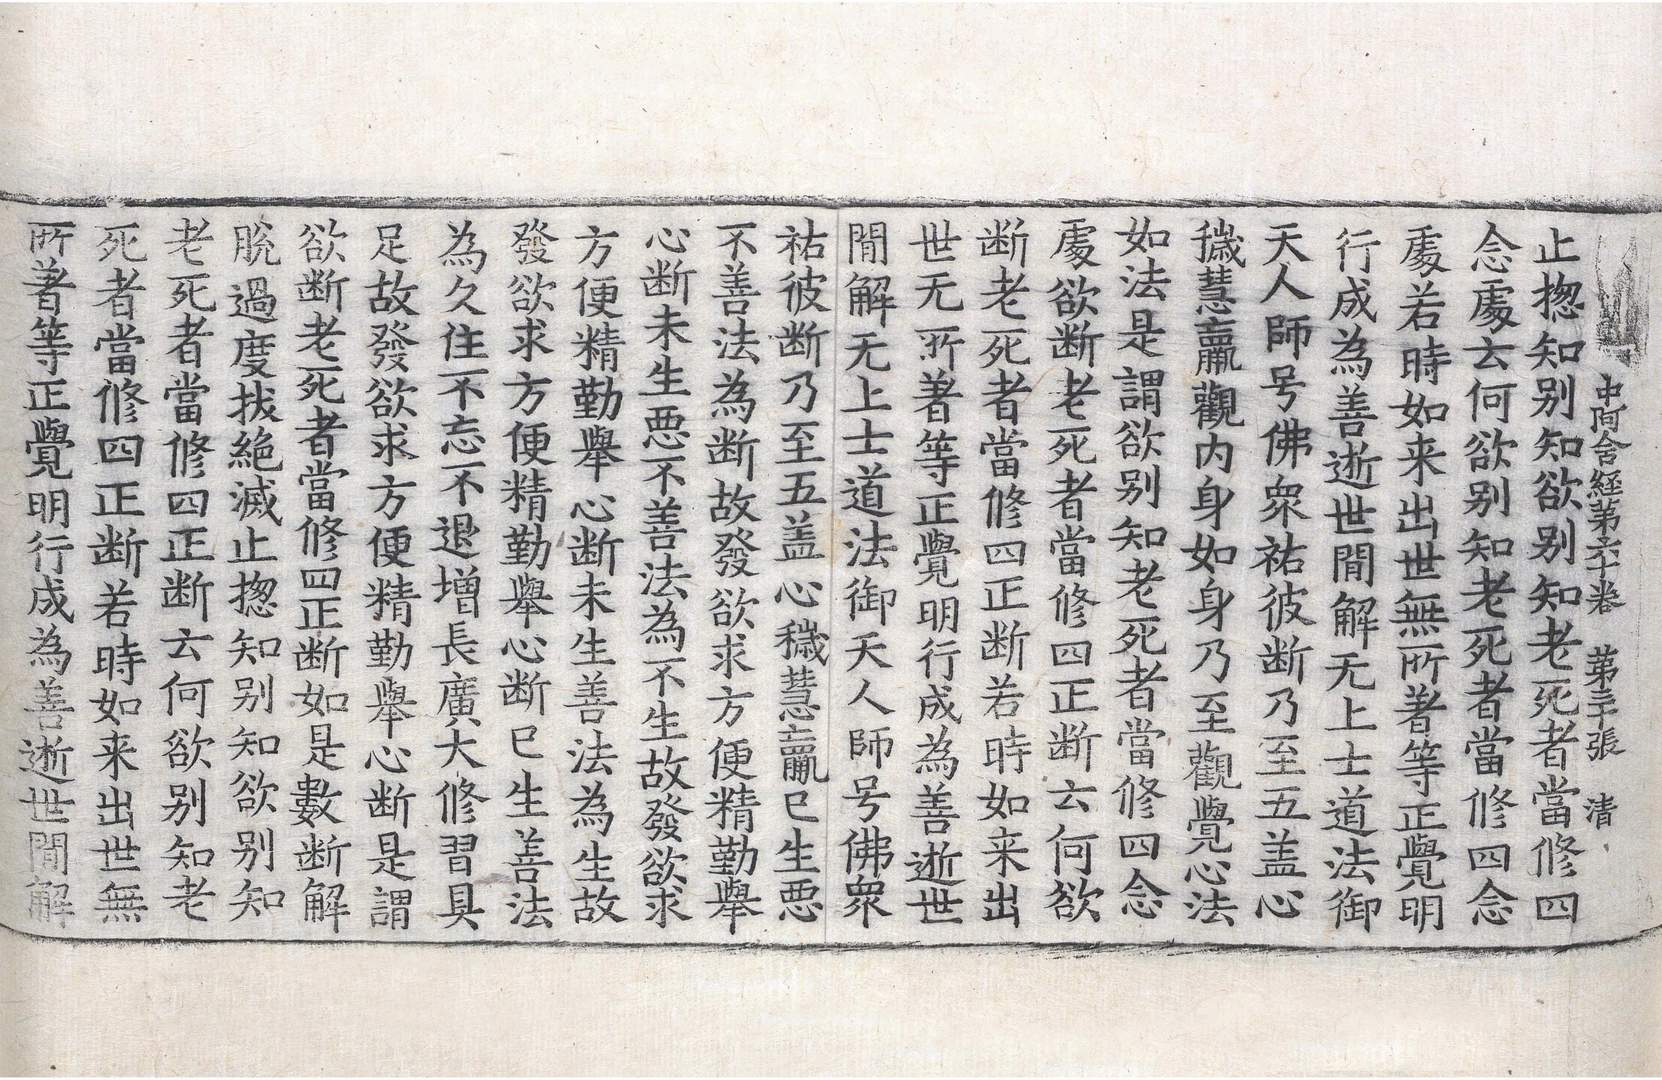 中阿含經第六十卷 第二十張 清
止揔知别知欲别知老死者當修四
念處云何欲别知老死者當修四念
處若時如来出世無所著等正覺明
行成為善逝世間解无上士道法御
天人師号佛衆祐彼断乃至五盖心
穢慧羸觀内身如身乃至觀覺心法
如法是謂欲别知老死者當修四念
處欲断老死者當修四正断云何欲
断老死者當修四正断若時如来出
世无所著等正覺明行成為善逝世
間解无上士道法御天人師号佛衆
祐彼断乃至五盖心穢慧羸已生悪
不善法為断故發欲求方便精勤舉
心断未生悪不善法為不生故發欲求
方便精勤舉心断未生善法為生故
發欲求方便精勤舉心断已生善法
為久住不忘不退增長廣大修習具
足故發欲求方便精勤舉心断是謂
欲断老死者當修四正断如是數断解
脫過度拔絶滅止揔知别知欲别知
老死者當修四正断云何欲别知老
死者當修四正断若時如来出世無
所著等正覺明行成為善逝世間解